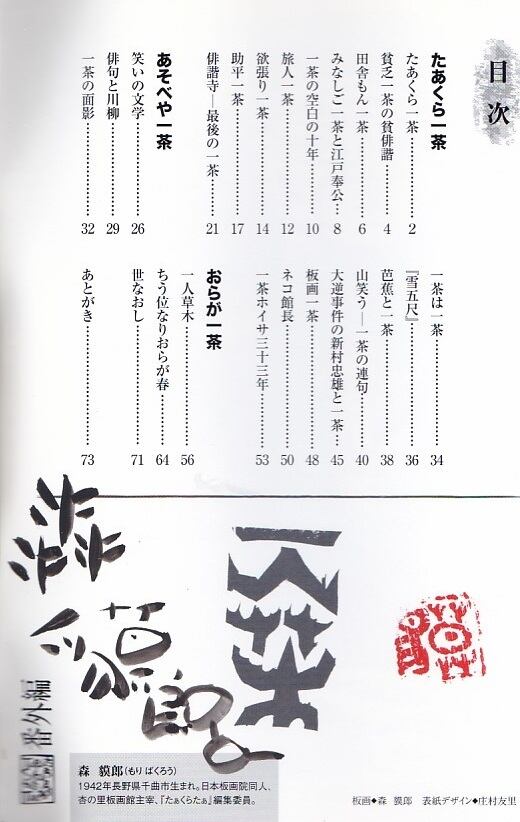 目次
たあくら一茶
たあくら一茶……2
貧乏一茶の貧俳諧……4
田舎もん一茶……6
みなしご一茶と江戸奉公…8
一茶の空白の十年……10
旅人一茶……12
欲張り一茶……14
助平一茶……17
俳諧寺―最後の一茶……21
あそべや一茶
笑いの文学……26
俳句と川柳……29
一茶の面影……32
一茶は一茶……34
『雪五尺』……36
芭蕉と一茶……38
山笑う―一茶の連句……40
大逆事件の新村忠雄と一茶…45
板画一茶……48
ネコ館長……50
一茶ホイサ三十三年……53
おらが一茶
一人草木……56
ちう位なりおらが春……64
世なおし……71
あとがき……73
森
貘郎
一茶
番外編
森 貘郎(もり ばくろう)
1942年長野県千曲市生まれ。日本板画院同人、
杏の里板画館主宰、『たぁくらたぁ』編集委員。
板画◆森 貘郎 表紙デザイン◆庄村友里